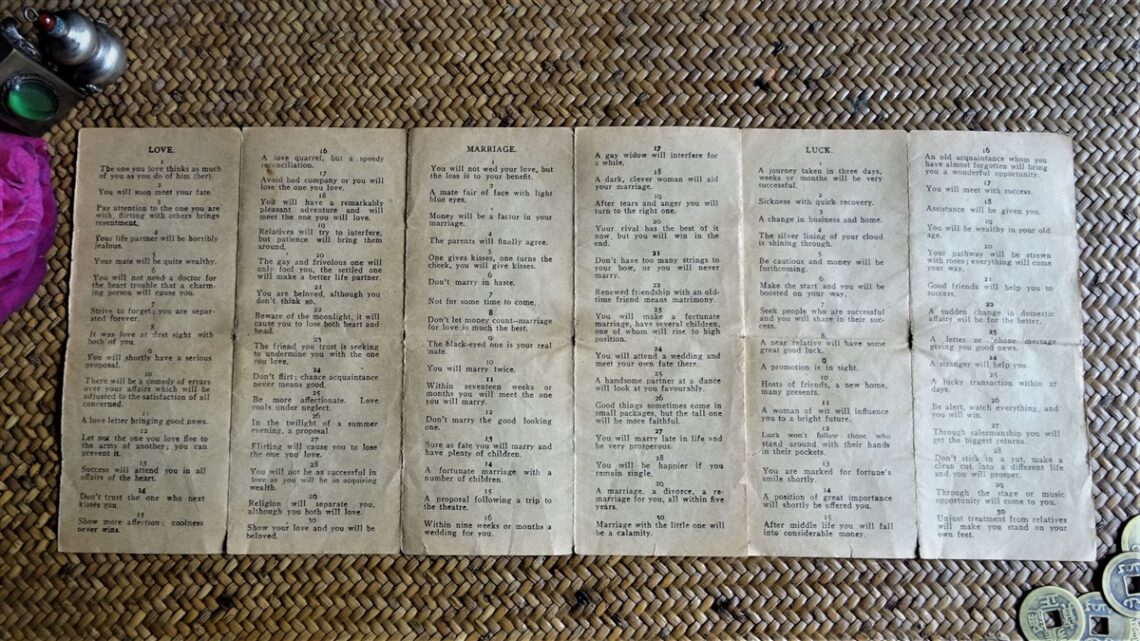 LOVE.
1
The one you love thinks as much
of you as you do of him (her).
2
You will soon meet your fate.
3
Pay attention to the one you are
with, flirting with others brings
resentment.
4
Your life partner will be horribly
jealous.
5
Your mate will be quite wealthy.
6
You will not need a doctor for
the heart trouble that a charm-
ing person will cause you.
7
Strive to forget; you are separ-
ated forever.
8
It was love at first sight with
both of you.
9
You will shortly have a serious
proposal.
10
There will be a comedy of errors
over your affairs which will be
adjusted to the satisfaction of all
concerned.
11
A love letter bringing good news.
12
Let not the one you love flee to
the arms of another; you can
prevent it.
13
Success will attend you in all
affairs of the heart.
14
Don't trust the one who next
kisses you.
15
Show more affection; coolness
never wins.
16
A love quarrel, but a speedy
reconciliation.
17
Avoid bad company or you will
lose the one you love.
18
You will have a remarkably
pleasant adventure and will
meet the one you will love.
19
Relatives will try to interfere,
but patience will bring them
around.
20
The gay and frivolous one will
only fool you, the settled one
will make a better life partner.
21
You are beloved, although you
don't think so.
22
Beware of the moonlight; it will
cause you to lose both heart and
head.
23
The friend you trust is seeking
to undermine you with the one
you love.
24
Don't flirt; chance acquaintance
never means good.
25
Be more affectionate. Love
cools under neglect.
26
In the twilight of a summer
evening, a proposal.
27
Flirting will cause you to lose
the one you love.
28
You will not be as successful in
love as you will be in acquiring
wealth.
29
Religion will separate you,
although you both will love.
30
Show your love and you will be
beloved.
MARRIAGE.
1
You will not wed your love, but
the loss is to your benefit.
2
A mate fair of face with light
blue eyes.
3
Money will be a factor in your
marriage.
4
The parents will finally agree.
5
One gives kisses, one turns the
cheek, you will give kisses.
6
Don't marry in haste.
7
Not for some time to come.
8
Don't let money count—marriage
for love is much the best.
9
The black-eyed one is your real
mate.
10
You will marry twice.
11
Within seventeen weeks or
months you will meet the one
you will marry.
12
Don't marry the good looking
one.
13
Sure as fate you will marry and
have plenty of children.
14
A fortunate marriage with a
number of children.
15
A proposal following a trip to
the theatre.
16
Within nine weeks or months a
wedding for you.
17
A gay widow will interfere for
a while.
18
A dark, clever woman will aid
your marriage.
19
After tears and anger you will
turn to the right one.
20
Your rival has the best of it
now, but you will win in the
end.
21
Don't have too many strings to
your bow, or you will never
marry.
22
Renewed friendship with an old-
time friend means matrimony.
23
You will make a fortunate
marriage, have several children,
one of whom will rise to high
position.
24
You will attend a wedding and
meet your own fate there.
25
A handsome partner at a dance
will look at you favourably.
26
Good things sometimes come in
small packages, but the tall one
will be more faithful.
27
You will marry late in life and
be very prosperous.
28
You will be happier if you
remain single.
29
A marriage, a divorce, a re-
marriage for you, all within five
years.
30
Marriage with the little one will
be a calamity.
LUCK.
1
A journey taken in three days,
weeks or months will be very
successful.
2
Sickness with quick recovery.
3
A change in business and home.
4
The silver lining of your cloud
is shining through.
5
Be cautious and money will be
forthcoming.
6
Make the start and you will be
boosted on your way.
7
Seek people who are successful
and you will share in their suc-
cess.
8
A near relative will have some
great good luck.
9
A promotion is in sight.
10
Hosts of friends, a new home,
many presents.
11
A woman of wit will influence
you to a bright future.
12
Luck won't follow those who
stand around with their hands
in their pockets.
13
You are marked for fortune's
smile shortly.
14
A position of great importance
will shortly be offered you.
15
After middle life you will fall
into considerable money.
16
An old acquaintance whom you
have almost forgotten will bring
you a wonderful opportunity.
17
You will meet with success.
18
Assistance will be given you.
19
You will be wealthy in your old
age.
20
Your pathway will be strewn
with roses; everything will come
your way.
21
Good friends will help you to
success.
22
A sudden change in domestic
affairs will be for the better.
23
A letter or 'phone message
giving you good news.
24
A stranger will help you.
25
A lucky transaction within 27
days.
26
Be alert, watch everything, and
you will win.
27
Through salesmanship you will
get the biggest returns.
28
Don't stick in a rut, make a
clean cut into a different life
and you will prosper.
29
Through the stage or music
opportunity will come to you.
30
Unjust treatment from relatives
will make you stand on your
own feet.